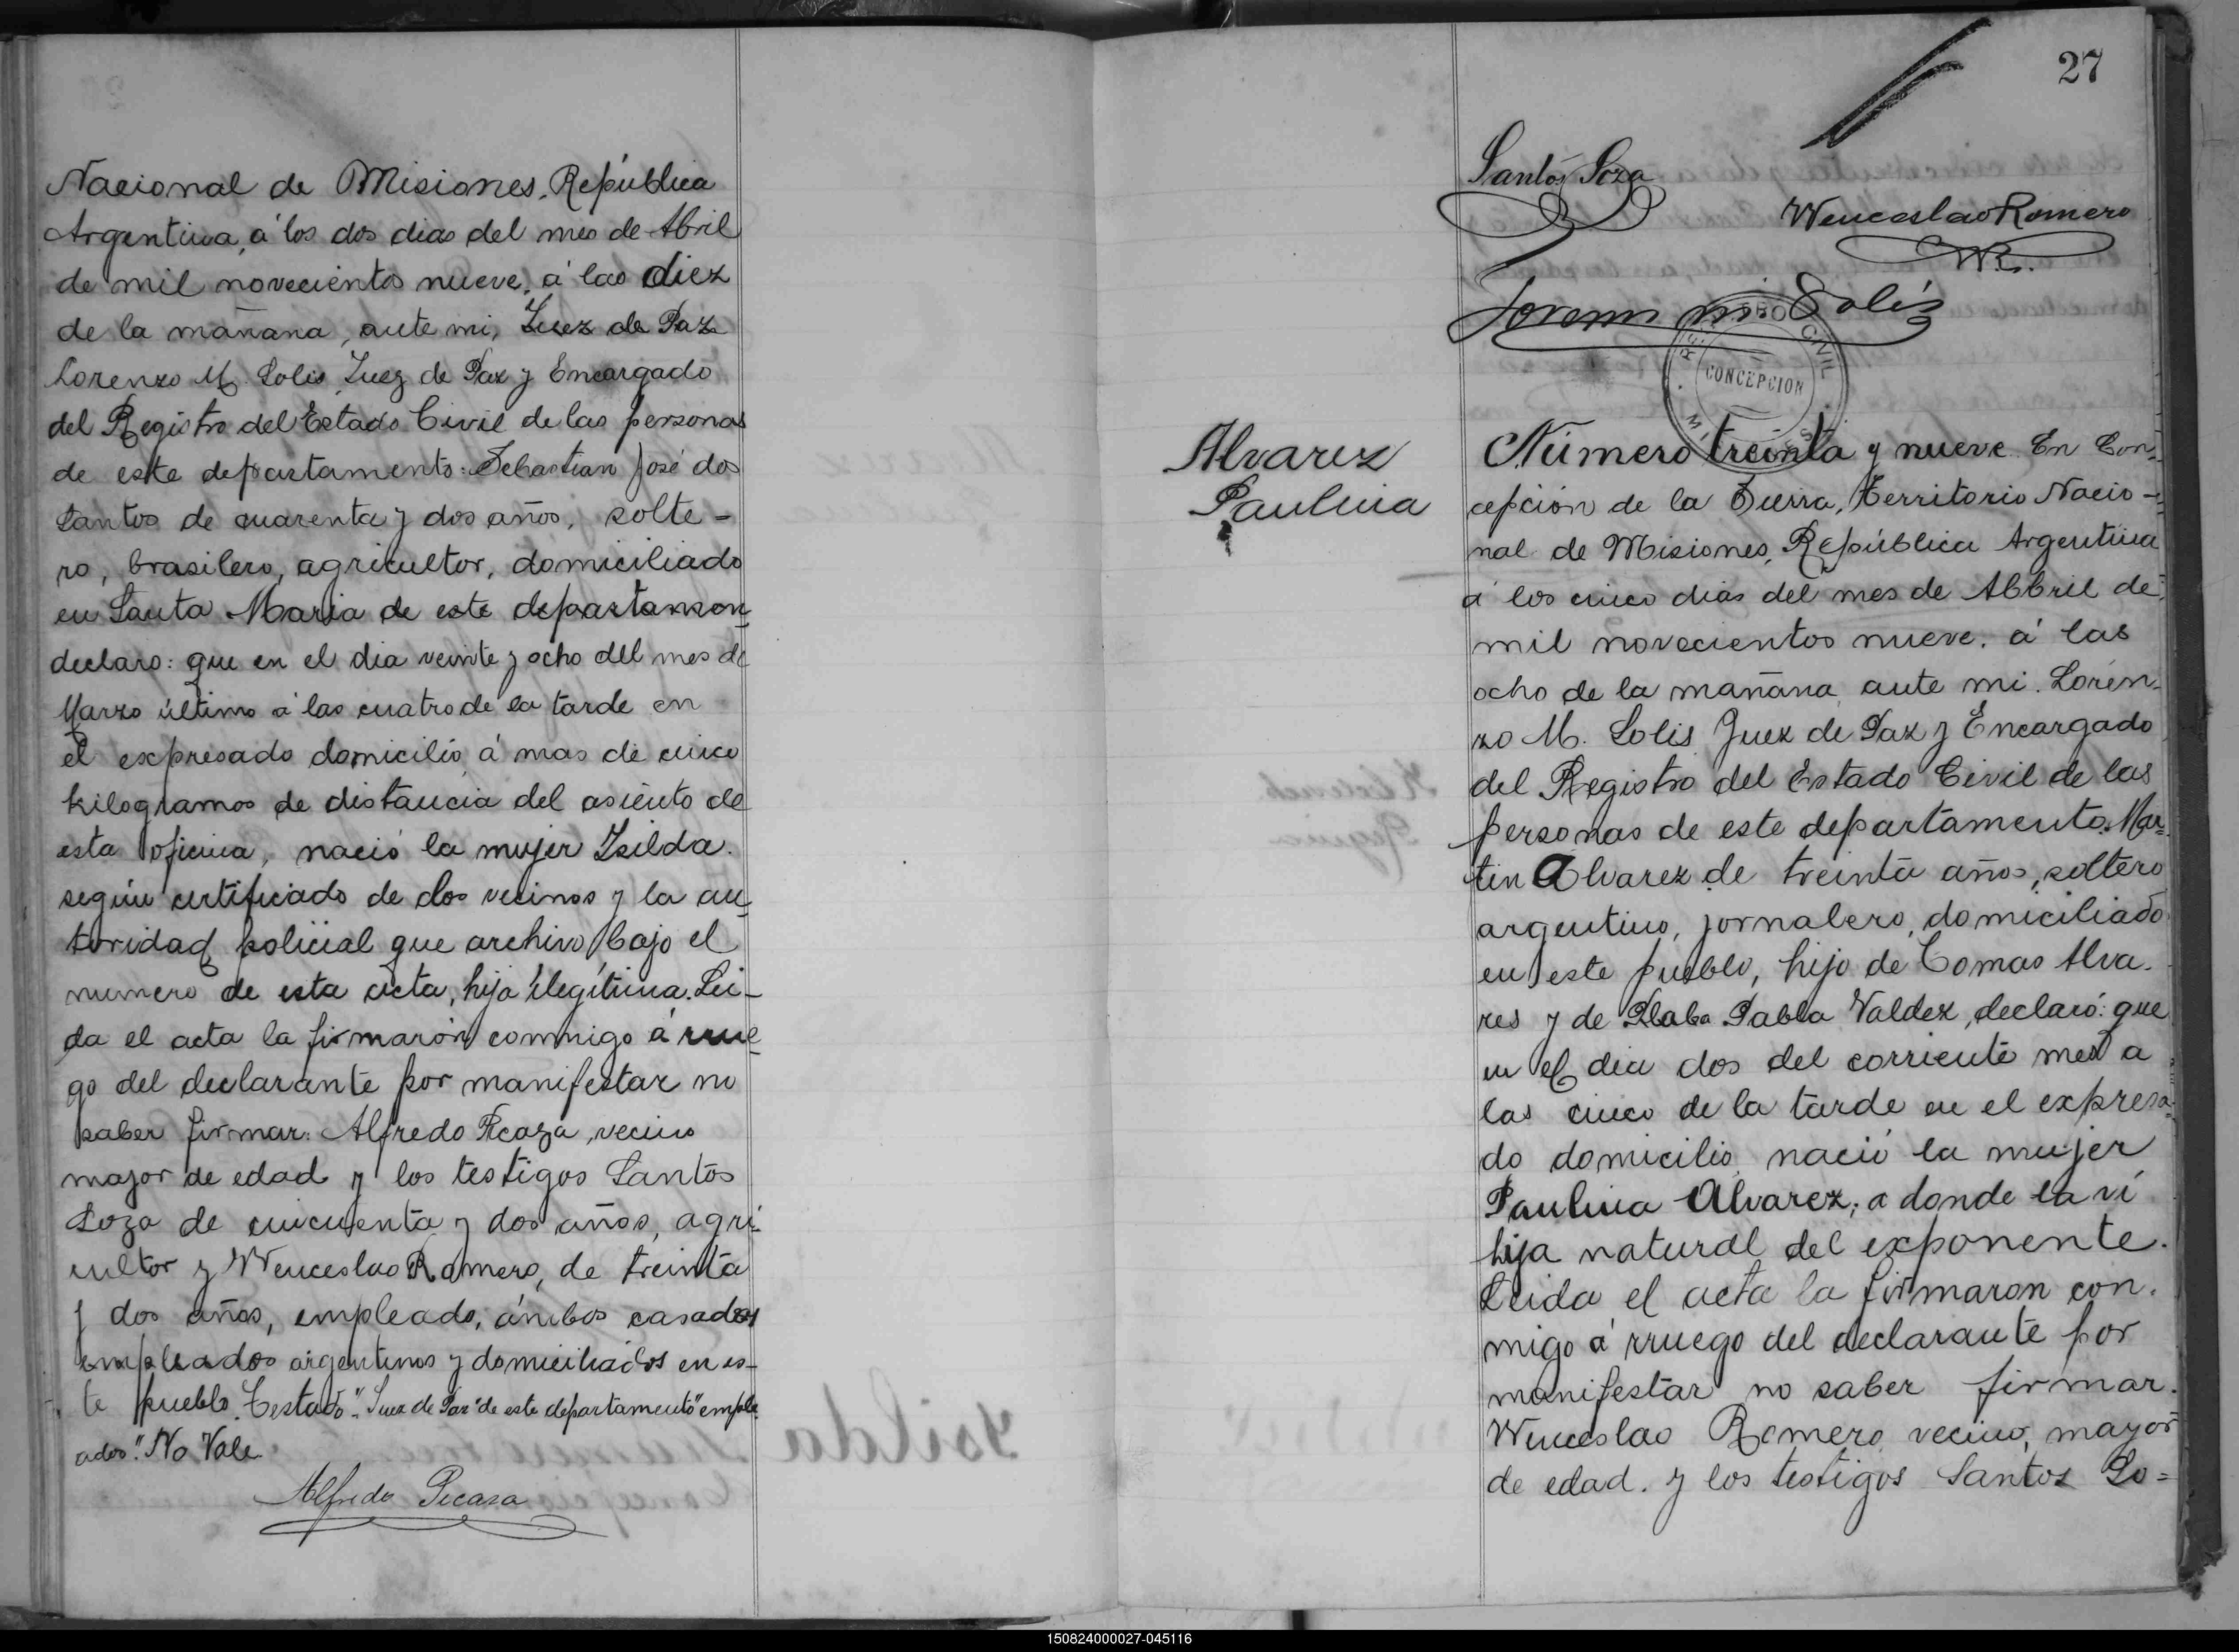 Nacional de Misiones, República
Argentina, á los dos dias del mes de Abril
de mil novecientos nueve, á las diez
de la mañana, ante mi, Juez de Paz
Lorenzo M. Solis Juez de Paz y Encargado
del Registro del Estado Civil de las personas
de este departamento: Sebastian José dos
Santos de cuarenta y dos años, solte-
ro, brasilero, agricultor, domiciliado
en Santa Maria de este departamen
declaro: que en el dia veinte y ocho del mes de
Marzo último á las cuatro de la tarde en
el expresado domicilio á mas de cinco
kilogramos de distancia del asiento de
esta oficina, nació la mujer Isilda.
según certificado de dos vecinos y la au-
toridad policial que archivo bajo el
numero de esta acta, hija ilegítima. Lei-
da el acta la firmarón conmigo á rrue-
go del declarante por manifestar no
saber firmar: Alfredo Picaza, vecino
mayor de edad y los testigos Santos
Soza de cincuenta y dos años, agri-
cultor y Wenceslao Romero, de treinta
y dos años, empleado, ámbos casados
empleados argentinos y domiciliados en es-
te pueblo. Testado "Juez de Paz" de este departamento" emple-
ados". No Vale.
Alfredo Picasa
27
Santos Soza
Wenceslao Romero
WR.
Lorenzo M. Solis
REGISTRO CIVIL
CONCEPCION
MISIONES
Alvarez
Paulina
Número treinta y nueve. En Con-
cepción de la Sierra, Territorio Nacio-
nal de Misiones, República Argentina
á los cinco dias del mes de Abbril de
mil novecientos nueve. á las
ocho de la mañana, ante mi. Loren-
zo M. Solis Juez de Paz y Encargado
del Registro del Estado Civil de las
personas de este departamento: Mar-
tin Alvarez de treinta años, soltero
argentino, jornalero, domiciliado
en este pueblo, hijo de Tomas Alva.
res y de Pabla Valdez, declaró: que
en el dia dos del corriente mes a
las cinco de la tarde en el expresa-
do domicilio nació la mujer
Paulina Alvarez, a donde la ví
hija natural del exponente.
Leida el acta la firmaron con.
migo á rruego del declarante por
manifestar no saber firmar.
Wenceslao Romero vecino, mayor
de edad. y los testigos Santos So=
150824000027-045116